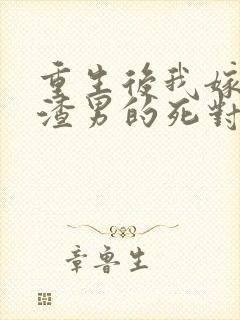 重生後我嫁
渣男的死對
章魯生